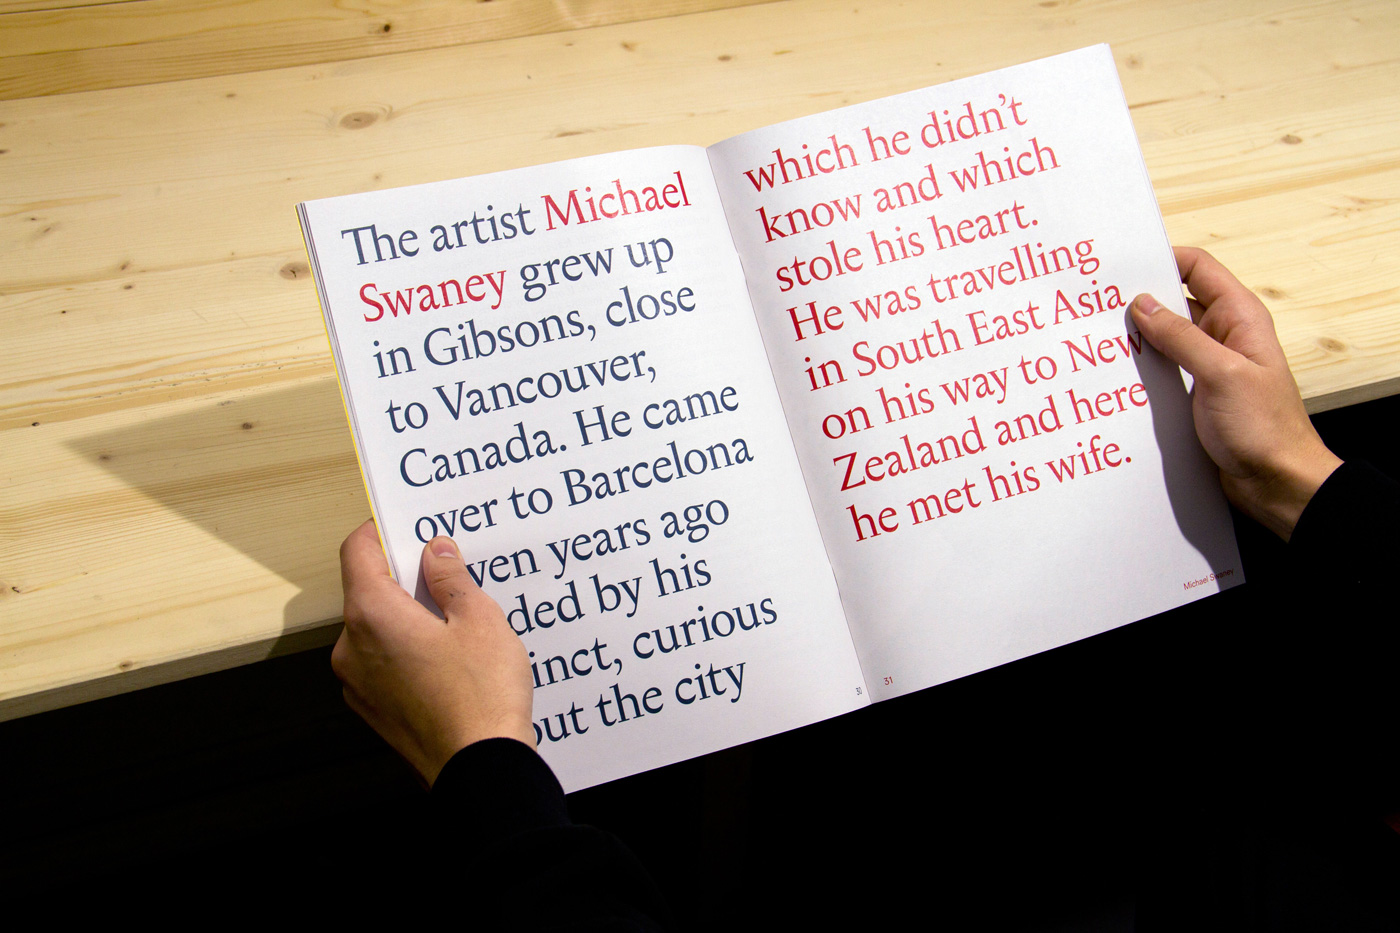 The artist Michael
Swaney grew up
in Gibsons, close
to Vancouver,
Canada. He came
over to Barcelona
years ago
by his
curious
the city
30
which he didn't
know and which
stole his heart.
He was travelling
in South East Asia
on his way to New
Zealand and here
he met his wife.
31
Michael Swaney